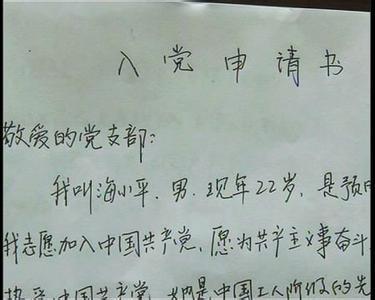 入党申请书
敬爱的党支部：
我叫海小平、男、现年22岁，是预
我志愿加入中国共产党，愿为共产主义事奋斗
热爱中国共产党 是中国工人阶级的先